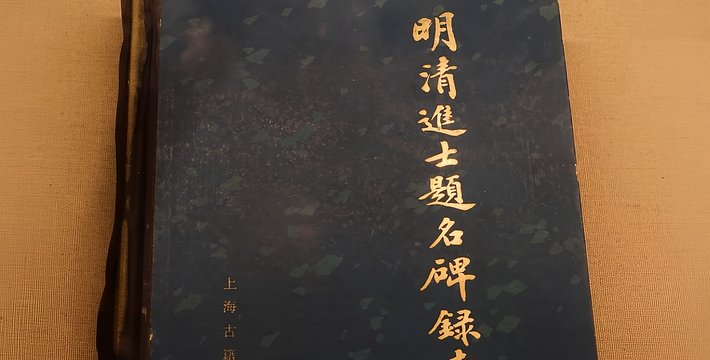 明清進士題名碑録
上海古籍